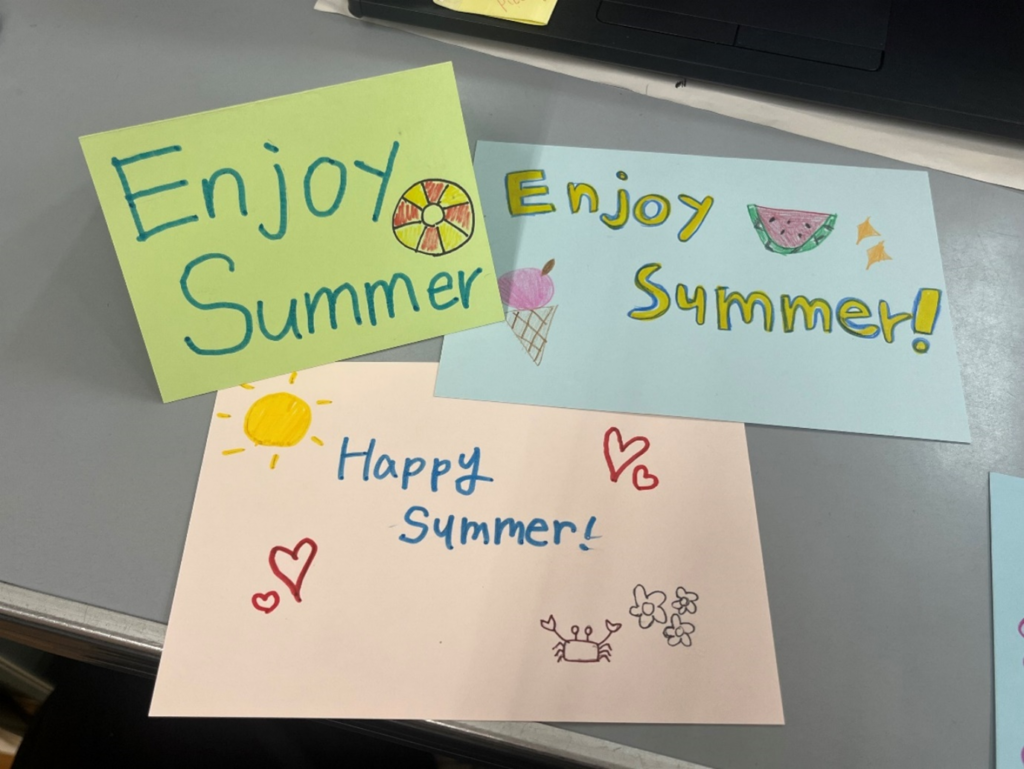 Enjoy
Summer
Enjoy
Summer!
Happy
Summer!